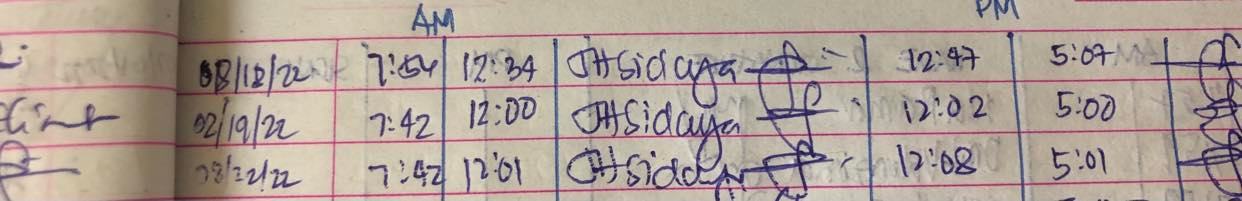 AM PM
08/18/22 7:54 12:34 JHSidaya 12:47 5:07
02/19/22 7:42 12:00 JHSidaya 12:02 5:00
08/22/22 7:42 12:01 JHSidaya 12:08 5:01